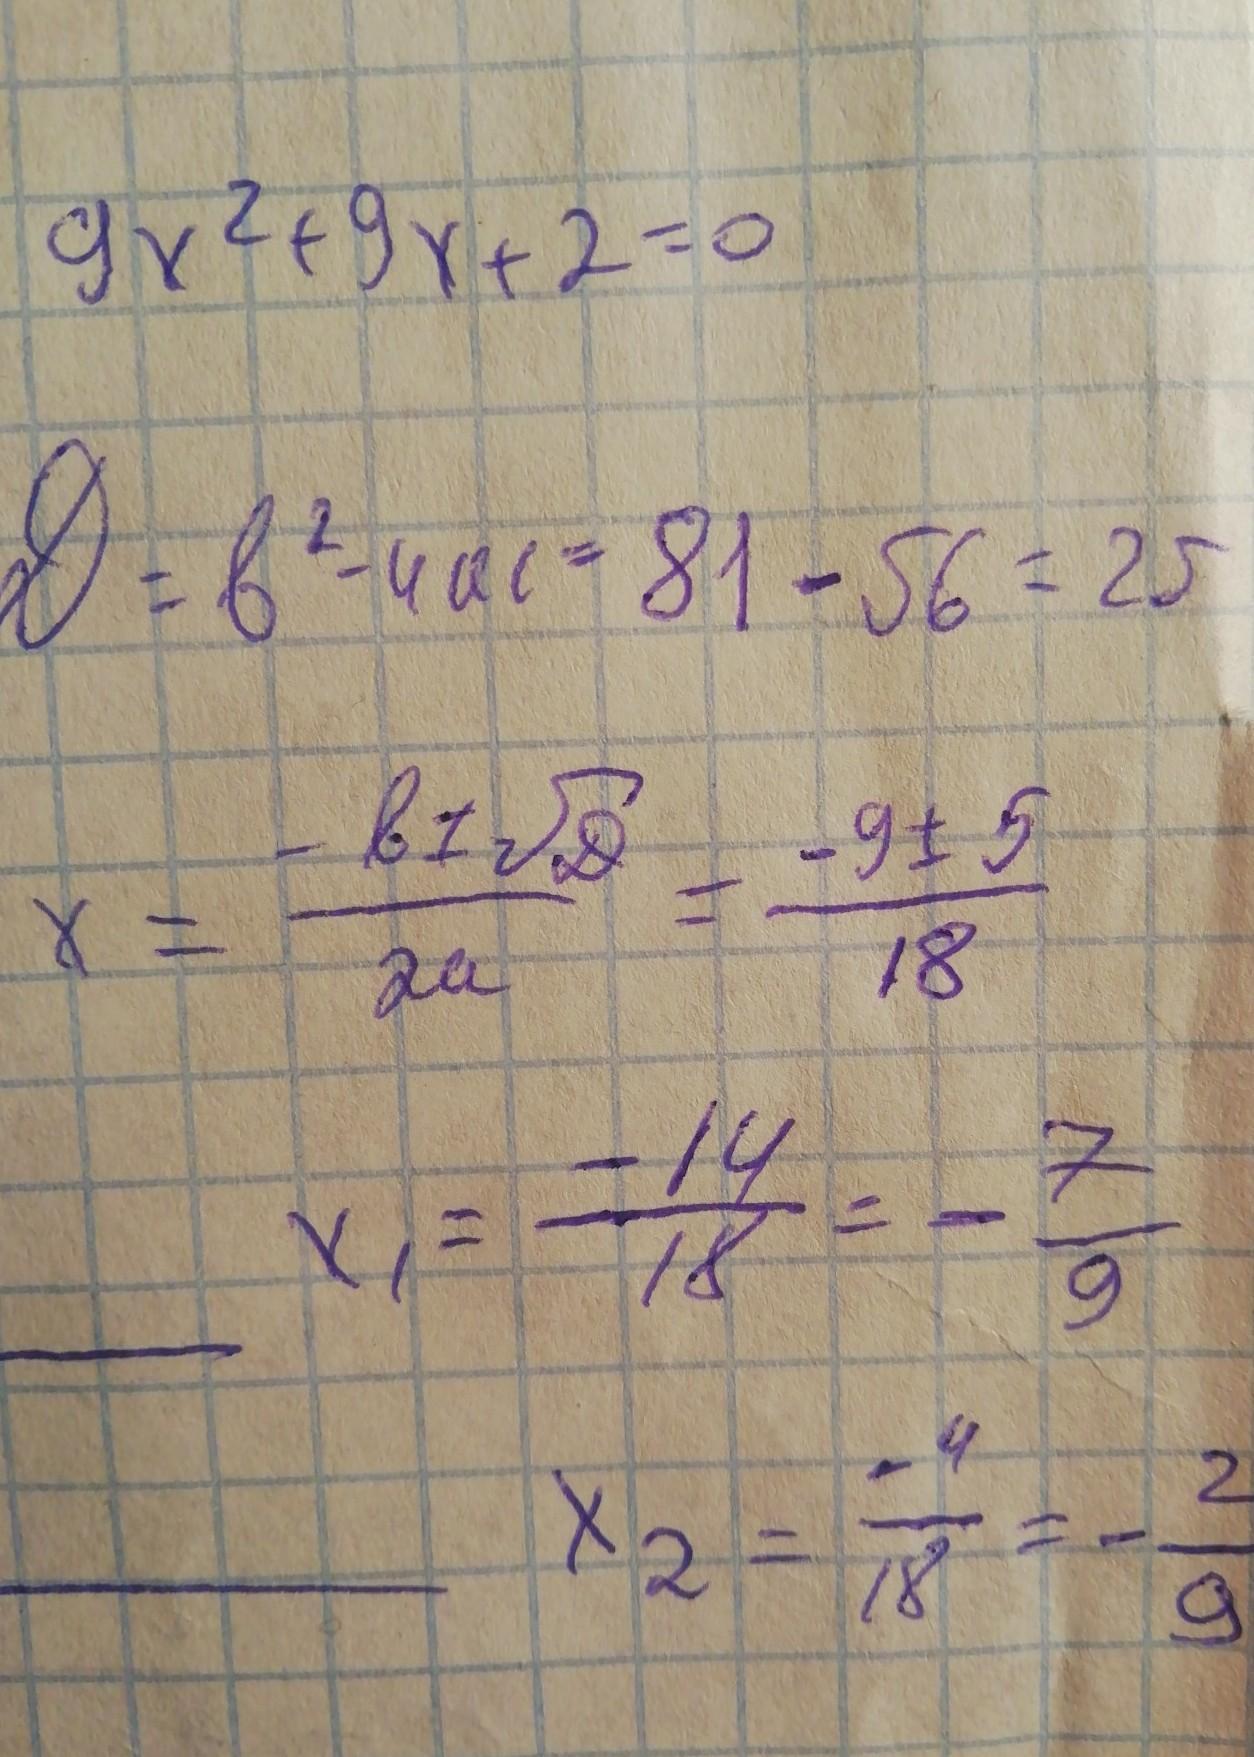 9x² + 9x + 2 = 0
D = b² - 4ac = 81 - 56 = 25
x = (-b ± √D) / 2a = (-9 ± 5) / 18
x₁ = -14/18 = -7/9
x₂ = -4/18 = -2/9